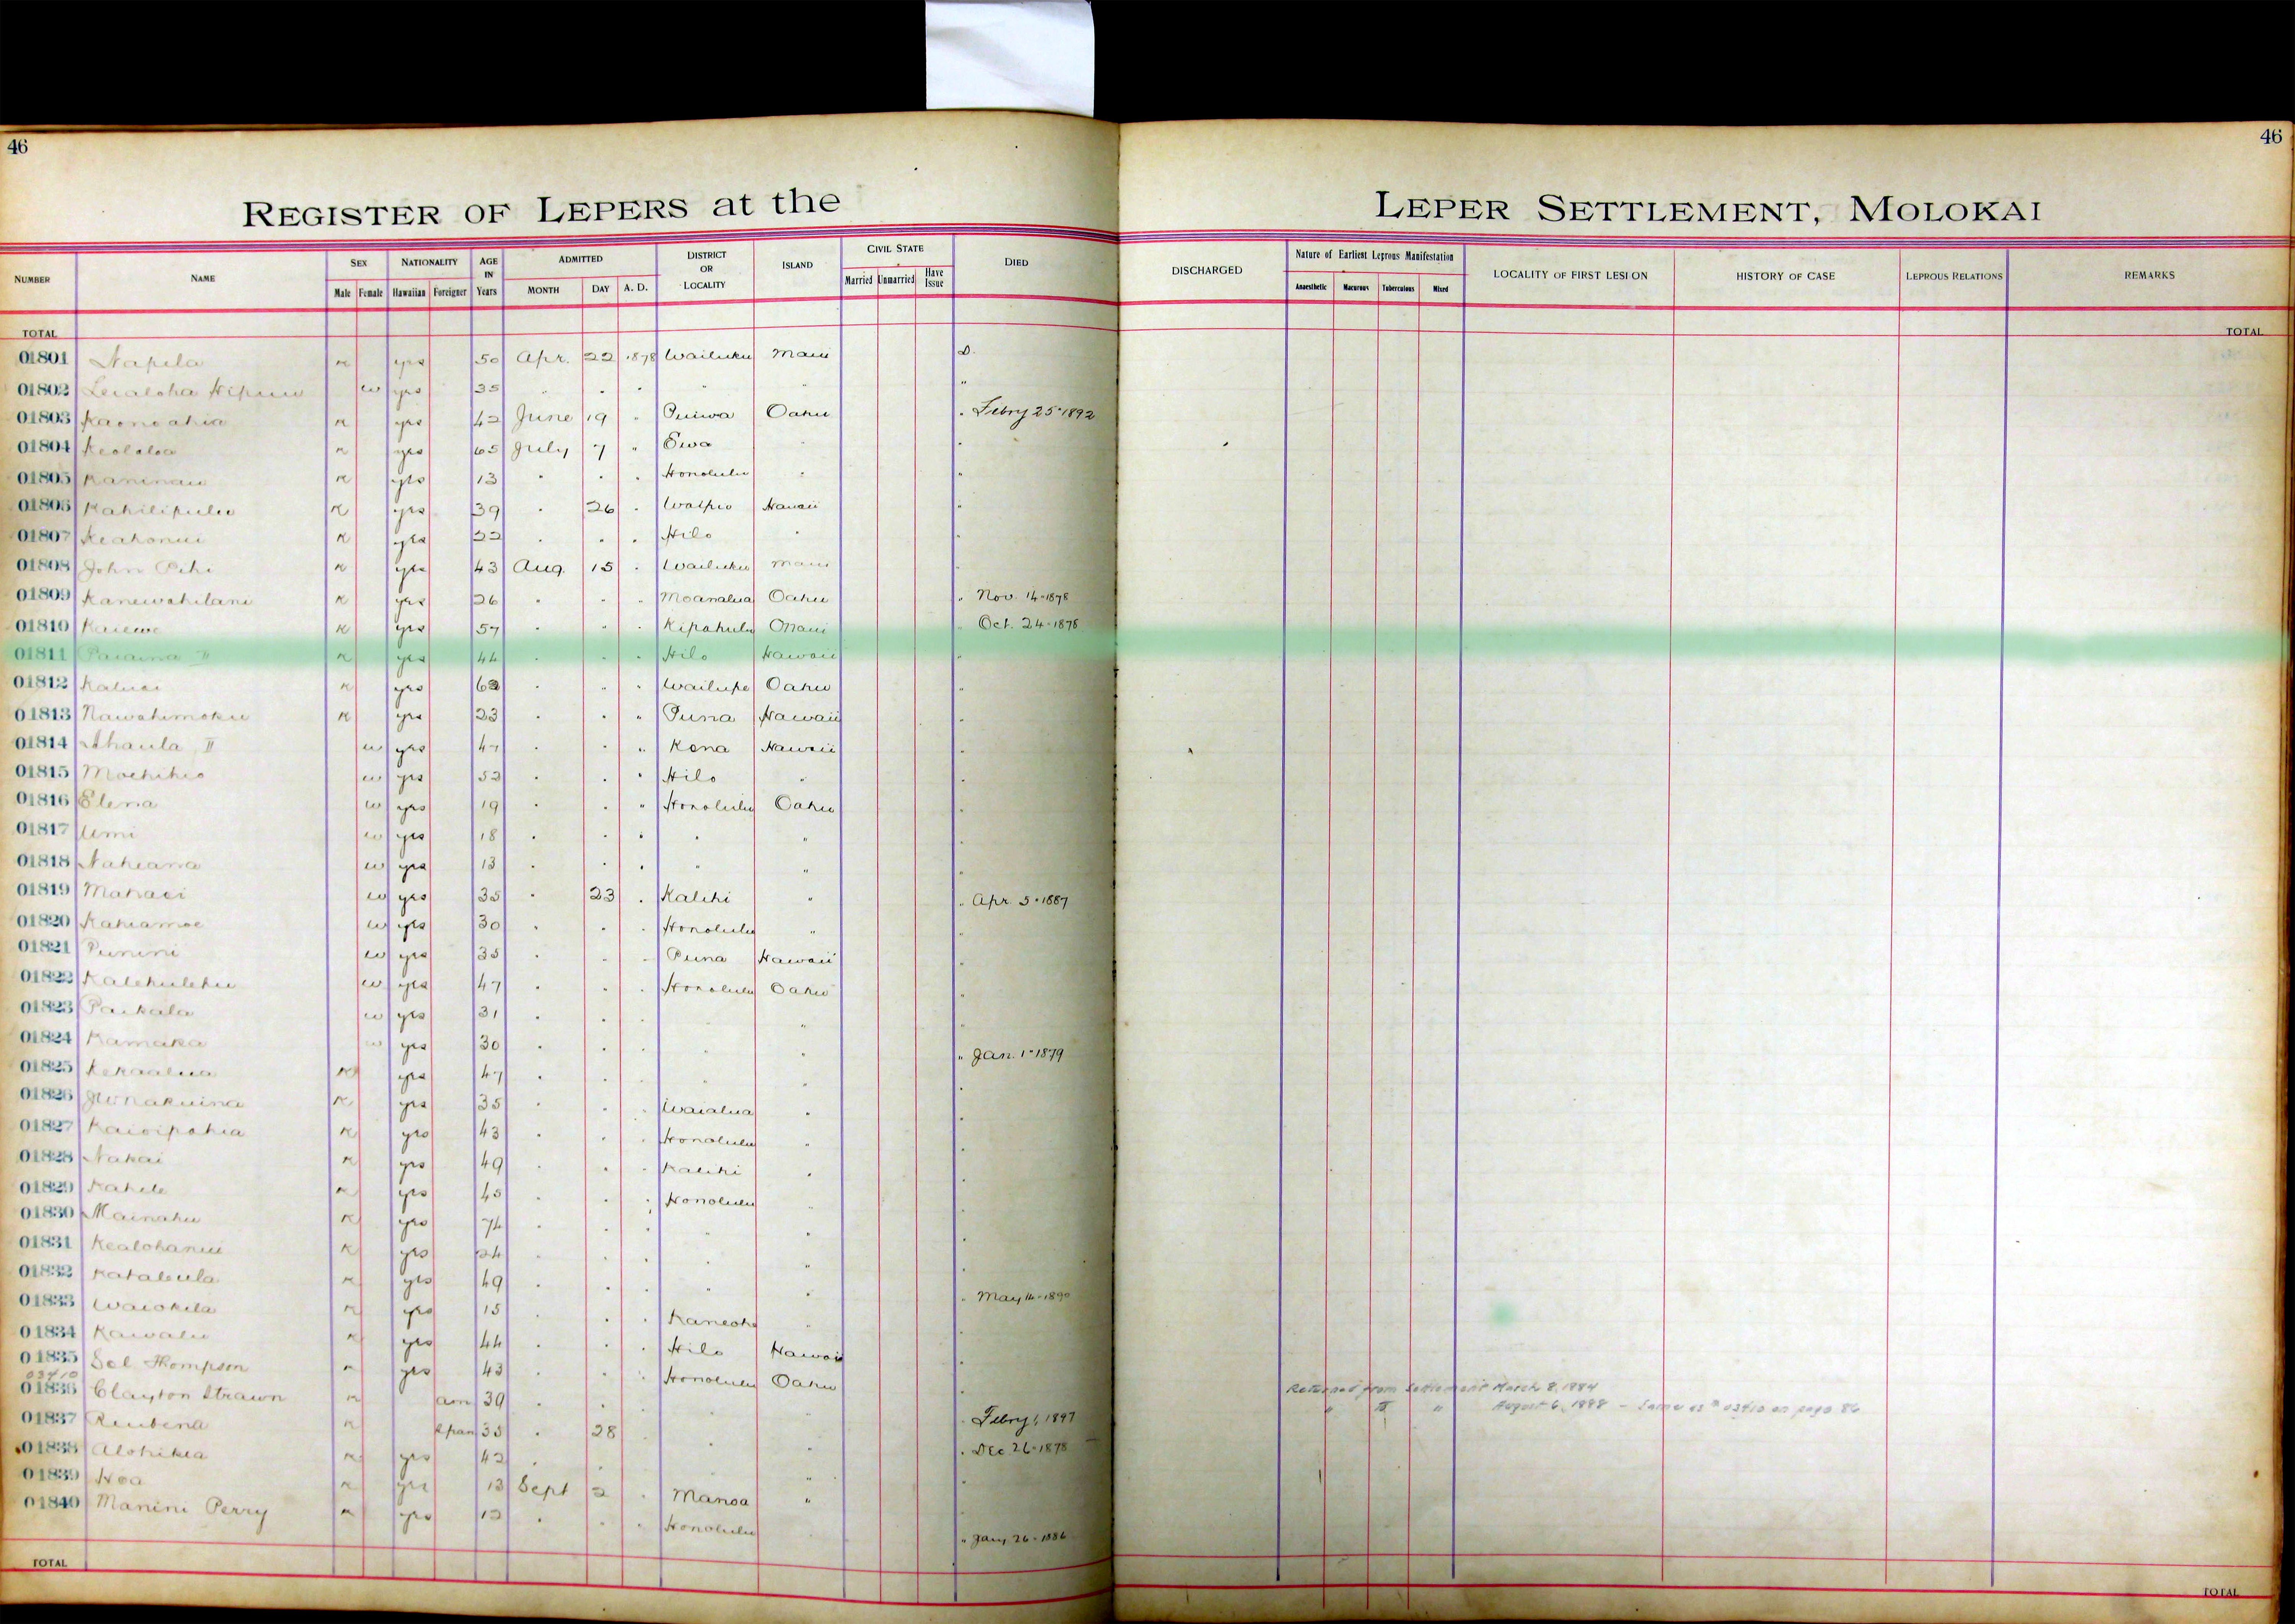 46
46
REGISTER OF LEPERS at the LEPER SETTLEMENT, MOLOKAI
NUMBER NAME SEX Male Female NATIONALITY Hawaiian Foreigner AGE IN Years ADMITTED MONTH DAY A. D. DISTRICT OR LOCALITY ISLAND CIVIL STATE Married Unmarried Have Issue DIED DISCHARGED Nature of Earliest Leprous Manifestation Anaesthetic Tuberculous Mixed LOCALITY OF FIRST LESION HISTORY OF CASE LEPROUS RELATIONS REMARKS
TOTAL TOTAL
01801 Napela m yes 50 Apr. 22 1878 Wailuku Maui D.
01802 Lealoha w yes 35 " " " " " "
01803 m yes 42 June 19 " Puiwa Oahu " Febry 25-1892
01804 Keololoa m yes 65 July 7 " Ewa " "
01805 Kaninau m yes 13 " " " Honolulu " "
01806 Kahilipulu m yes 39 " 26 " Waipio Hawaii "
01807 Keahonui m yes 22 " " " Hilo " "
01808 John m yes 43 Aug. 15 " Wailuku Maui "
01809 Kanewahilani m yes 26 " " " Moanalua Oahu " Nov. 14-1878
01810 m yes 57 " " " Kipahulu Maui " Oct. 24-1878
01811 Paiaina II m yes 44 " " " Hilo Hawaii "
01812 m yes 62 " " " Wailupe Oahu "
01813 Nawahimoku m yes 23 " " " Puna Hawaii "
01814 Ahaula II w yes 47 " " " Kona Hawaii "
01815 w yes 52 " " " Hilo " "
01816 Elena w yes 19 " " " Honolulu Oahu "
01817 Umi w yes 18 " " " " " "
01818 Nakeana w yes 13 " " " " " "
01819 w yes 35 " 23 " Kalihi " " Apr. 5-1887
01820 Kahiamoe w yes 30 " " " Honolulu " "
01821 Punini w yes 35 " " " Puna Hawaii "
01822 Kalehulehu w yes 47 " " " Honolulu Oahu "
01823 Paikala w yes 31 " " " " " "
01824 Kamaka w yes 30 " " " " " " Jan. 1-1879
01825 Kekaalua m yes 47 " " " " " "
01826 m yes 35 " " " Waialua " "
01827 Kaioipahia m yes 43 " " " Honolulu " "
01828 Nakai m yes 49 " " " Kalihi " "
01829 Kahele m yes 45 " " " Honolulu " "
01830 Mainahu m yes 74 " " " " " "
01831 Kealohanui m yes 24 " " " " " "
01832 m yes 49 " " " " " " May 14-1890
01833 Waiokila m yes 15 " " " Kaneohe " "
01834 Kawalu m yes 44 " " " Hilo Hawaii "
01835 Sol Thompson m yes 43 " " " Honolulu Oahu "
03410
01836 Clayton Strawn m am 39 " " " " " " Febry 1, 1897 Returned from Settlement March 8, 1884
" " " August 6, 1888 - Same as # 03410 on page 86
01837 Reubena m Span 35 " 28 " " " " Dec 26-1878
01838 Alohikea m yes 42 " " " " " "
01839 Hoa m yes 13 Sept 2 " Manoa " "
01840 Manini Perry m yes 12 " " " Honolulu " " Jany 26-1886
TOTAL TOTAL